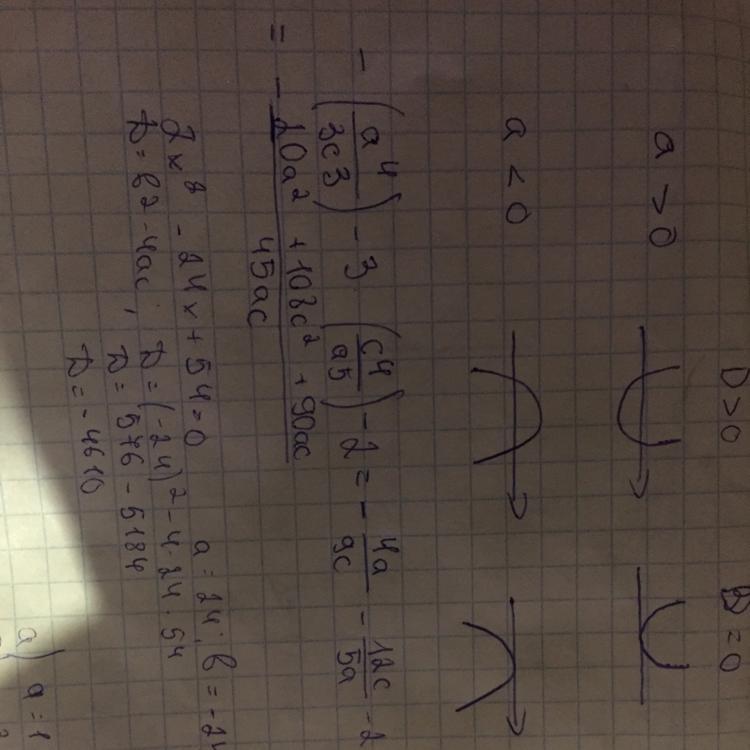 D>0 D=0
a>0
a<0
-(a4/3c3)-3(c4/a5)-2=-4a/9c-12c/5a-2
=-20a²+108c²+90ac/45ac
2x²-24x+54=0 a=24; b=-24
D=b2-4ac; D=(-24)²-4·24·54
D=576-5184
D=-4610
a) a=1